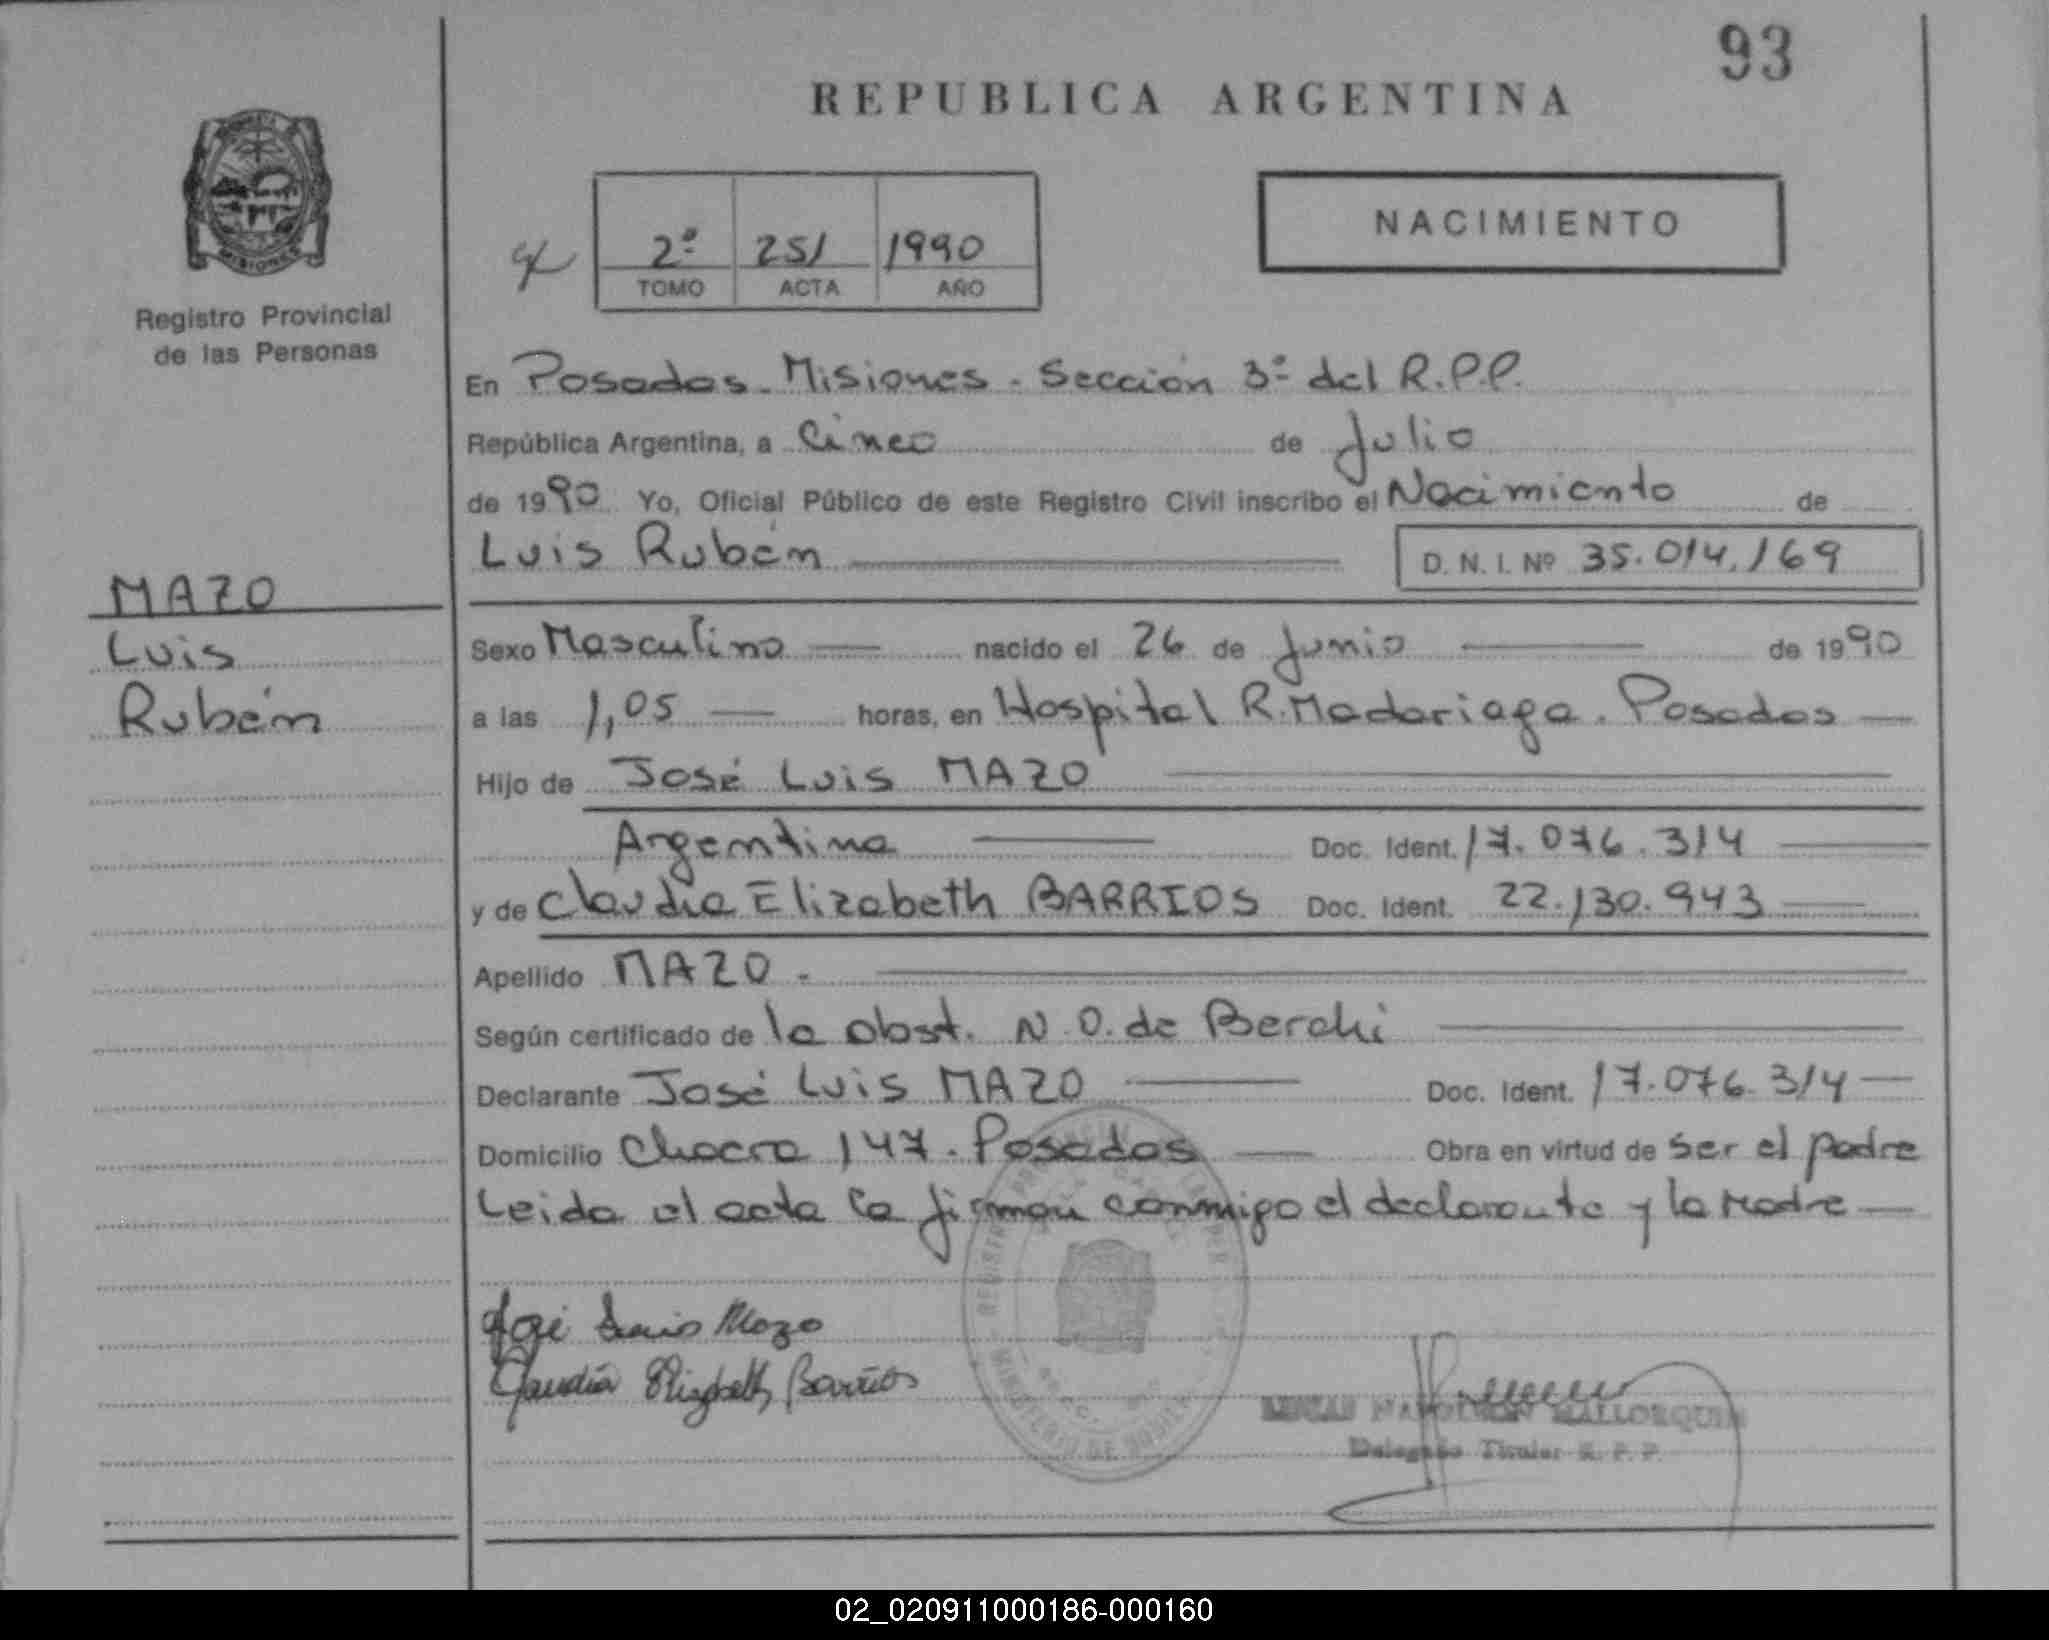 93
REPUBLICA ARGENTINA
NACIMIENTO
2º 251 1990
TOMO ACTA AÑO
MISIONES
Registro Provincial
de las Personas
En Posadas - Misiones - Sección 3º del R.P.P.
República Argentina, a Cinco de Julio
de 1990 Yo, Oficial Público de este Registro Civil inscribo el Nacimiento de
Luis Rubén D. N. I. Nº 35.014.169
MAZO
Luis
Rubén
Sexo Masculino nacido el 26 de Junio de 1990
a las 1,05 horas, en Hospital R. Madariaga. Posadas
Hijo de José Luis MAZO
Argentina Doc. Ident. 17.076.314
y de Claudia Elizabeth BARRIOS Doc. Ident. 22.130.943
Apellido MAZO.
Según certificado de la obst. N. O. de Berchi
Declarante José Luis MAZO Doc. Ident. 17.076.314
Domicilio Chacra 147. Posadas Obra en virtud de ser el padre
Leida el acta la firman conmigo el declarante y la Madre
José Luis Mazo
Claudia Elizabeth Barrios
MALLORQUIN
Delegado Titular R. P. P.
02_020911000186-000160